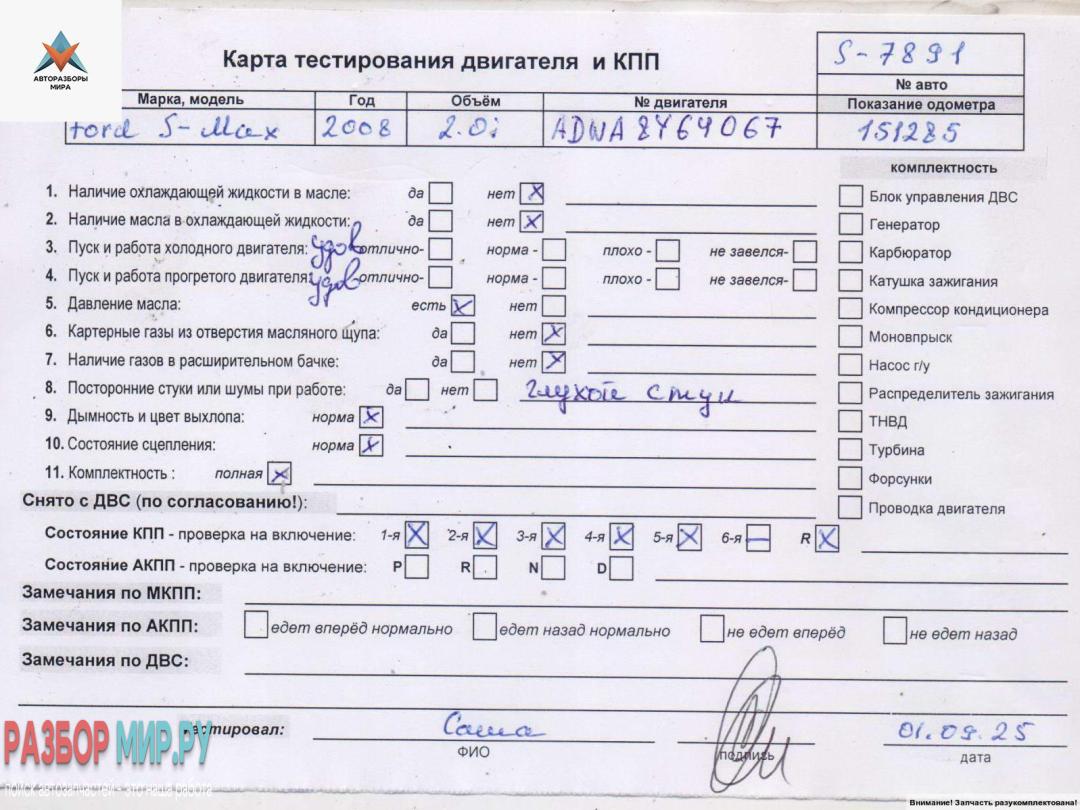 АВТОРАЗБОРЫ
МИРА
Карта тестирования двигателя и КПП
S-7891
№ авто
Марка, модель Год Объём № двигателя Показание одометра
Ford S-Max 2008 2.0i 151285
комплектность
1. Наличие охлаждающей жидкости в масле: да нет X Блок управления ДВС
2. Наличие масла в охлаждающей жидкости: да нет X Генератор
3. Пуск и работа холодного двигателя: удов отлично- норма - плохо - не завелся- Карбюратор
4. Пуск и работа прогретого двигателя: удов отлично- норма - плохо - не завелся- Катушка зажигания
5. Давление масла: есть X нет Компрессор кондиционера
6. Картерные газы из отверстия масляного щупа: да нет X Моновпрыск
7. Наличие газов в расширительном бачке: да нет X Насос г/у
8. Посторонние стуки или шумы при работе: да нет глухой стук Распределитель зажигания
9. Дымность и цвет выхлопа: норма X ТНВД
10. Состояние сцепления: норма X Турбина
11. Комплектность : полная X Форсунки
Снято с ДВС (по согласованию!): Проводка двигателя
Состояние КПП - проверка на включение: 1-я X 2-я X 3-я X 4-я X 5-я X 6-я — R X
Состояние АКПП - проверка на включение: P R N D
Замечания по МКПП:
Замечания по АКПП: едет вперёд нормально едет назад нормально не едет вперёд не едет назад
Замечания по ДВС:
тестировал: Саша 01.09.25
ФИО подпись дата
РАЗБОР МИР.РУ
поиск автозапчастей - это наша работа
Внимание! Запчасть разукомплектована!